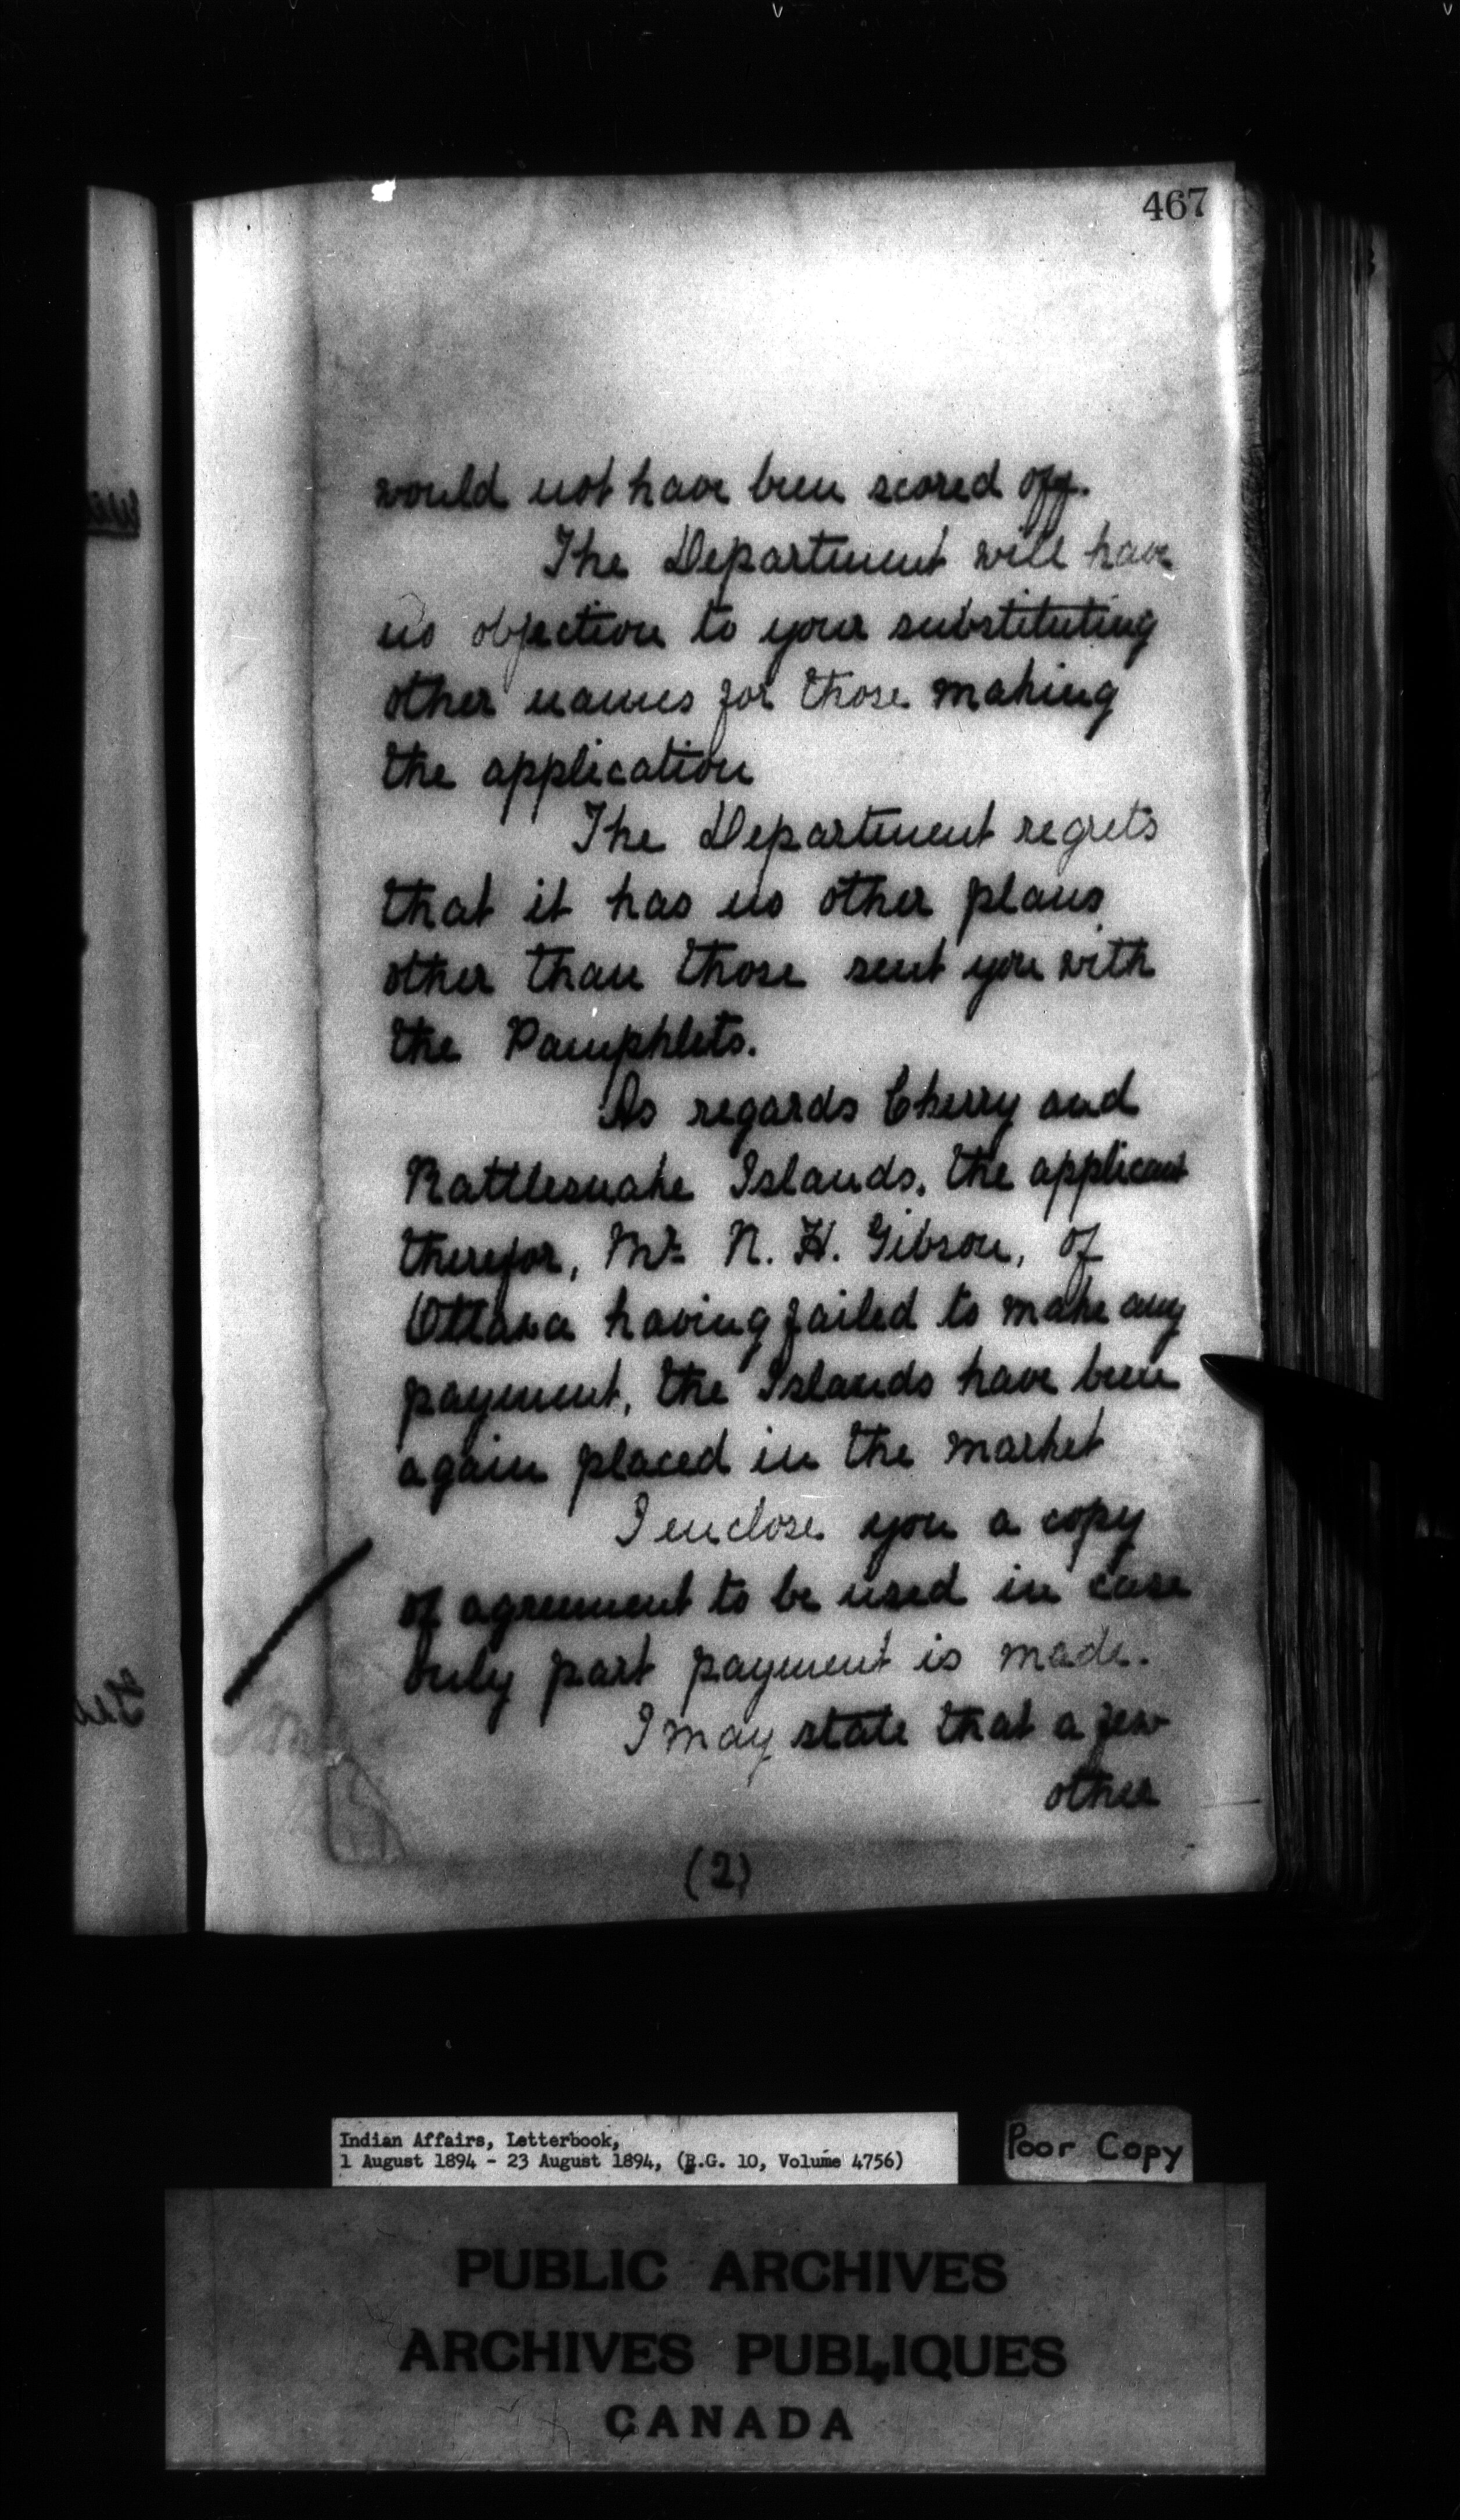 467
would not have been scored off.
The Department will have
no objection to your substituting
other names for those making
the application
The Department regrets
that it has no other plans
other than those sent you with
the Pamphlets.
As regards Cherry and
Rattlesnake Islands, the applicant
therefor, Mr. N. H. Gibson, of
Ottawa having failed to make any
payment, the Islands have been
again placed in the market
I enclose you a copy
of agreement to be used in case
only part payment is made.
I may state that a few
other
(2)
Indian Affairs, Letterbook,
1 August 1894 - 23 August 1894, (R.G. 10, Volume 4756)
Poor Copy
PUBLIC ARCHIVES
ARCHIVES PUBLIQUES
CANADA